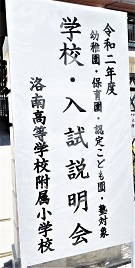 令和二年度
幼稚園・保育園・認定こども園・塾対象
学校・入試説明会
洛南高等学校附属小学校